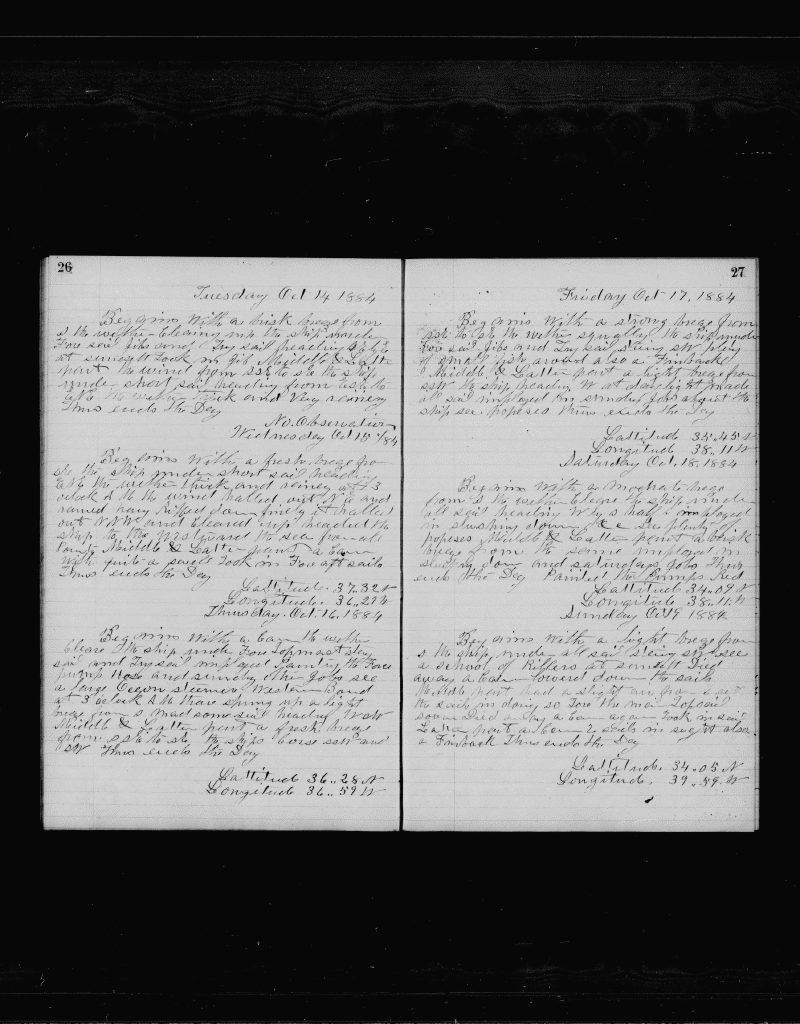 26
Tuesday Oct 14 1884
Beggins With a brisk brege from
S the wether Clearing up the ship under
Fore sail jibs and Trysail heading
at sunsett Took in Jib Middle & Latter
part the wind from SSE to SE the ship
under short sail heading from
the wether thick and Very rainey
Thus ends the Day
No Observation
Wednesday Oct 15 /84
Beggins With a fresh brege fro
the ship under short sail heading
the wether thick and rainey at 3
oclock the wind halled out and
it halled
out NNW and Cleared up headed the
ship to the Westward the sea from all
Points Middle & Latter part a
with quite a Took in Fore aft sails
Thus ends the Day
Lattitude 37..32 N
Longitude. 36..27 W
Thursday. Oct. 16. 1884
Beggins With a Cam the wether
Cleare the ship under Fore Topmast Stay
sail and Trysail imployed Painting the Fore
pump Hose and sundrey other Jobs see
a large Ocean steemer Western Bound
at 3 oclock A M thare sprung up a light
brege from S Mad some sail heading WSW
Middle & Latter part a fresh brege
from the ships Corse SSW and
SW Thus ends the Day
Lattitude 36..28 N
Longitude 36..59 W
27
Friday Oct 17, 1884
Beggins With a strong brege from
the wether squalley the ship under
Fore sail Jibs and Trysail stering SW plenty
of small fish around also a Finback
Middle & Latter part a light brege from
SSW the ship heading W at day light made
all sail imployed in sundrey Jobs about the
ship see popeses Thus ends the Day
Lattitude 35..45 N
Longitude 38..11 W
Saturday Oct, 18, 1884
Beggins With a Moderate brege
from S the wether Cleare the ship under
all sail heading W by S imployed
in slushing down see plenty of
popeses Middle & Latter part a brisk
brege from the same imployed in
slushing down and saturdays Jobs Thus
ends the Day Painted the Pumps Red
Lattitude 34..09 N
Longitude 38..11. W
Sunday Oct 19 1884
Beggins With a light brege from
S the ship under all sail stering SW see
a school of Killers at sunsett Died
away a Cam lowered down the sails
Middle part had a slight air from S set
the sails in doing so Tore the main Topsail
soon Died away a Cam again Took in sail
Latter part a Cam 2 sails in sight also
a Finback Thus ends the Day
Lattitude. 34..05 N
Longitude. 39..59. W